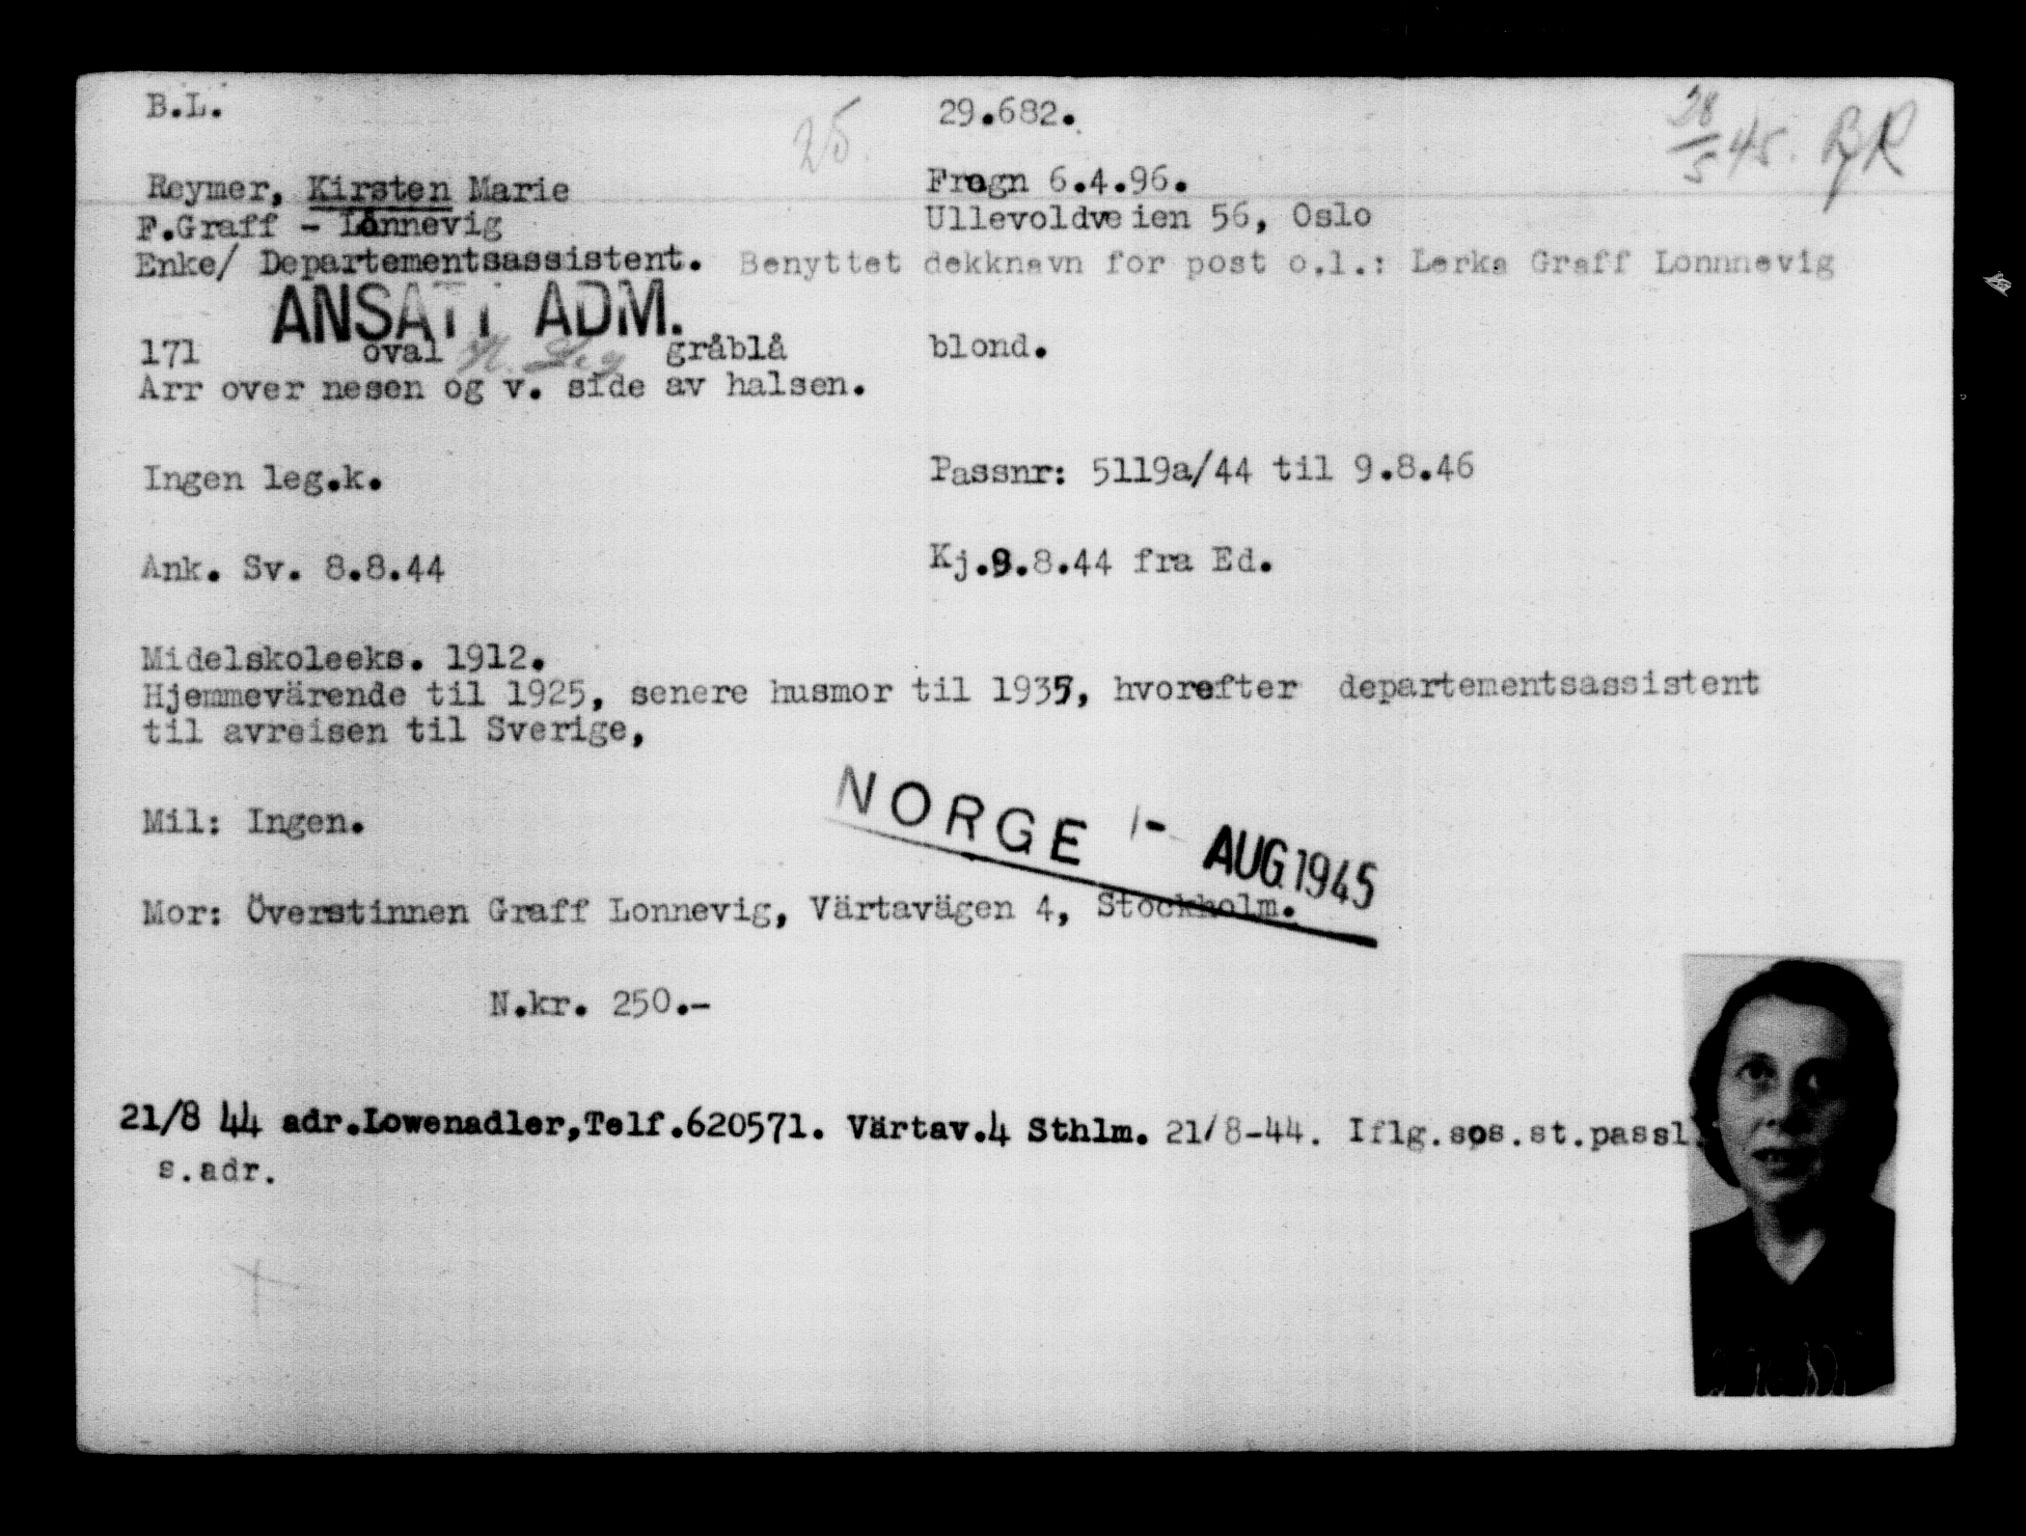 B.L. 29.682. 28/5 45. BR
25.
Reymer, Kirsten Marie Frogn 6.4.96.
F.Graff - Lonnevig Ullevoldveien 56, Oslo
Enke/ Departementsassistent. Benyttet dekknavn for post o.l.: Lerka Graff Lonnnevig
ANSATT ADM.
171 oval gråblå blond.
Arr over nesen og v. side av halsen.
Ingen leg.k. Passnr: 5119a/44 til 9.8.46
Ank. Sv. 8.8.44 Kj.9.8.44 fra Ed.
Midelskoleeks. 1912.
Hjemmevärende til 1925, senere husmor til 1937, hvorefter departementsassistent
til avreisen til Sverige,
Mil: Ingen.
NORGE 1- AUG 1945
Mor: Överstinnen Graff Lonnevig, Värtavägen 4, Stockholm.
N.kr. 250.-
21/8 44 adr.Lowenadler,Telf.620571. Värtav.4 Sthlm. 21/8-44. Iflg.sos.st.passl.
s.adr.